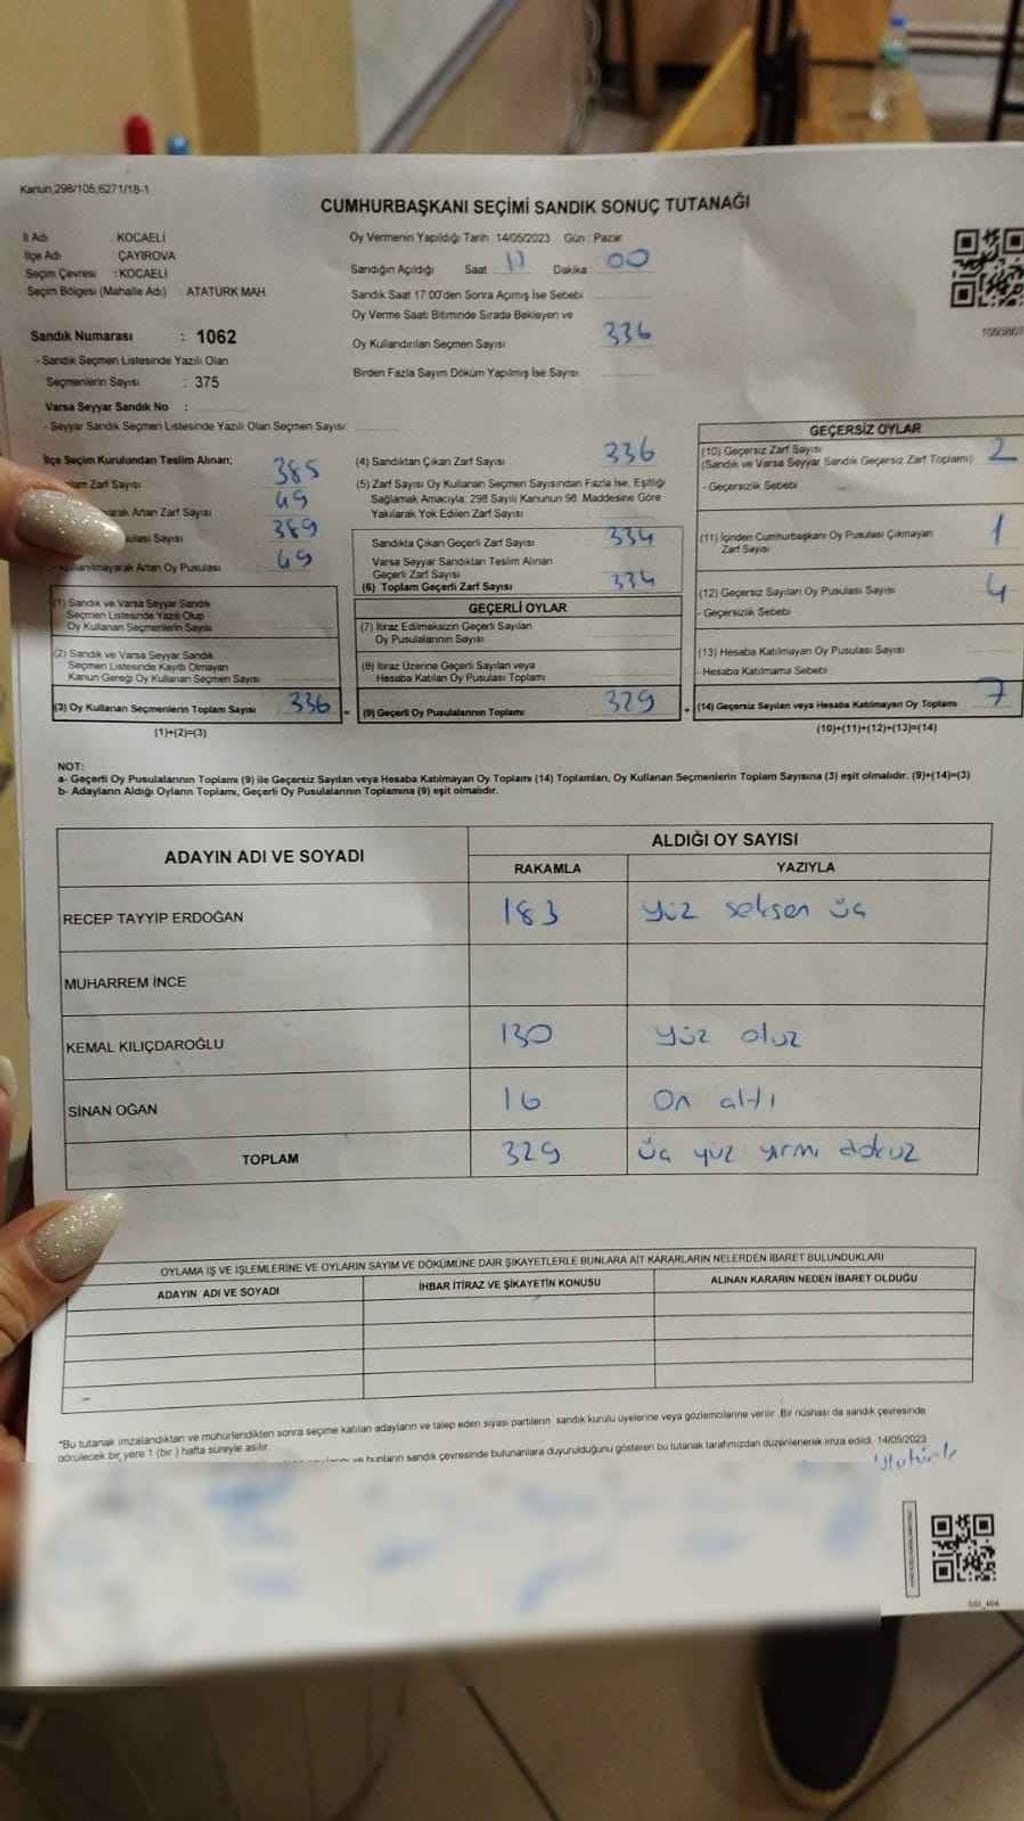 Kanun,298/105,6271/18-1
CUMHURBAŞKANI SEÇİMİ SANDIK SONUÇ TUTANAĞI
İl Adı : KOCAELİ
İlçe Adı : ÇAYIROVA
Seçim Çevresi : KOCAELİ
Seçim Bölgesi (Mahalle Adı) : ATATÜRK MAH.
Oy Vermenin Yapıldığı Tarih : 14/05/2023 Gün : Pazar
Sandığın Açıldığı Saat 17 Dakika : 00
Sandık Saat 17:00'den Sonra Açımış İse Sebebi
Oy Verme Saati Bitiminde Sırada Bekleyen ve
Oy Kullandırılan Seçmen Sayısı 336
Birden Fazla Sayım Döküm Yapılmış İse Sayısı
Sandık Numarası : 1062
- Sandık Seçmen Listesinde Yazılı Olan
Seçmenlerin Sayısı : 375
Varsa Seyyar Sandık No :
- Seyyar Sandık Seçmen Listesinde Yazılı Olan Seçmen Sayısı:
İlçe Seçim Kurulundan Teslim Alınan;
Zarf Sayısı 385
Artan Zarf Sayısı 49
Sayısı 389
Artan Oy Pusulası 49
(1) Sandık ve Varsa Seyyar Sandık
Seçmen Listesinde Yazılı Olup
Oy Kullanan Seçmenlerin Sayısı
(2) Sandık ve Varsa Seyyar Sandık
Seçmen Listesinde Kayıtlı Olmayan
Kanun Gereği Oy Kullanan Seçmen Sayısı
(3) Oy Kullanan Seçmenlerin Toplam Sayısı 336
(1)+(2)=(3)
(4) Sandıktan Çıkan Zarf Sayısı 336
(5) Zarf Sayısı Oy Kullanan Seçmen Sayısından Fazla İse, Eşitliği
Sağlamak Amacıyla; 298 Sayılı Kanunun 98. Maddesine Göre
Yakılarak Yok Edilen Zarf Sayısı
Sandıkta Çıkan Geçerli Zarf Sayısı 334
Varsa Seyyar Sandıktan Teslim Alınan
Geçerli Zarf Sayısı
(6) Toplam Geçerli Zarf Sayısı 334
GEÇERLİ OYLAR
(7) İtiraz Edilmeksizin Geçerli Sayılan
Oy Pusulalarının Sayısı
(8) İtiraz Üzerine Geçerli Sayılan veya
Hesaba Katılan Oy Pusulası Toplamı
(9) Geçerli Oy Pusulalarının Toplamı 329
GEÇERSİZ OYLAR
(10) Geçersiz Zarf Sayısı 2
(Sandık ve Varsa Seyyar Sandık Geçersiz Zarf Toplamı)
- Geçersizlik Sebebi
(11) İçinden Cumhurbaşkanı Oy Pusulası Çıkmayan
Zarf Sayısı 1
(12) Geçersiz Sayılan Oy Pusulası Sayısı 4
- Geçersizlik Sebebi
(13) Hesaba Katılmayan Oy Pusulası Sayısı
- Hesaba Katılmama Sebebi
(14) Geçersiz Sayılan veya Hesaba Katılmayan Oy Toplamı 7
(10)+(11)+(12)+(13)=(14)
NOT:
a- Geçerli Oy Pusulalarının Toplamı (9) ile Geçersiz Sayılan veya Hesaba Katılmayan Oy Toplamı (14) Toplamları, Oy Kullanan Seçmenlerin Toplam Sayısına (3) eşit olmalıdır. (9)+(14)=(3)
b- Adayların Aldığı Oyların Toplamı, Geçerli Oy Pusulalarının Toplamına (9) eşit olmalıdır.
ADAYIN ADI VE SOYADI
ALDIĞI OY SAYISI
RAKAMLA YAZIYLA
RECEP TAYYİP ERDOĞAN 183 yüz seksen üç
MUHARREM İNCE
KEMAL KILIÇDAROĞLU 130 yüz otuz
SİNAN OĞAN 16 on altı
TOPLAM 329 üç yüz yirmi dokuz
OYLAMA İŞ VE İŞLEMLERİNE VE OYLARIN SAYIM VE DÖKÜMÜNE DAİR ŞİKAYETLERLE BUNLARA AİT KARARLARIN NELERDEN İBARET BULUNDUKLARI
ADAYIN ADI VE SOYADI İHBAR İTİRAZ VE ŞİKAYETİN KONUSU ALINAN KARARIN NEDEN İBARET OLDUĞU
*Bu tutanak imzalandıktan ve mühürlendikten sonra seçime katılan adayların ve talep eden siyasi partilerin sandık kurulu üyelerine veya gözlemcilerine verilir. Bir nüshası da sandık çevresinde
görülecek bir yere 1 (bir ) hafta süreyle asılır.
bunların sandık çevresinde bulunanlara duyurulduğunu gösteren bu tutanak tarafımızdan düzenlenerek imza edildi. 14/05/2023